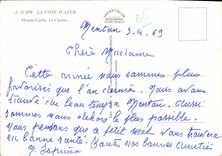 A. 11 879 LA COTE D'AZUR
Monte-Carlo Le Casino
Menton 3.4.69
Chère Madame
Cette année nous sommes plus
favorisés que l'an dernier. Nous avons
beau temps Menton. Aussi
sommes nous dehors le plus possible.
Nous pensons que ce petit mot vous trouvera
en bonne santé. Toute nos bonnes amitiés